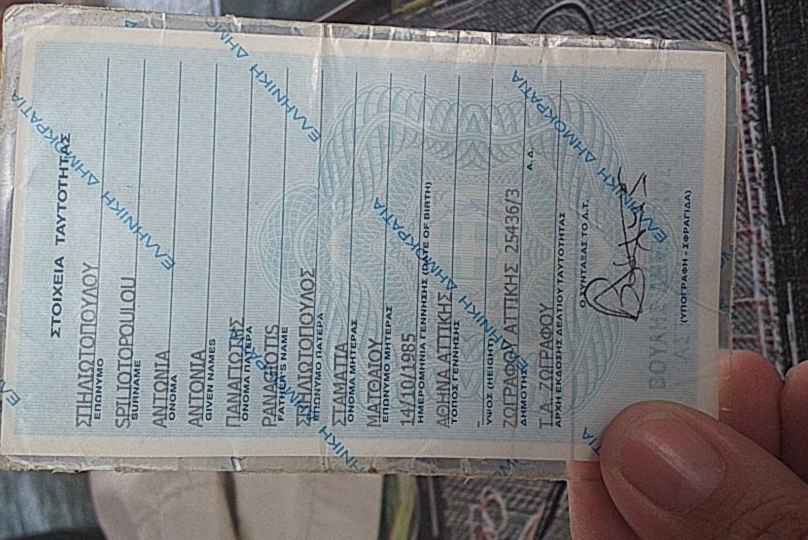 ΣΤΟΙΧΕΙΑ ΤΑΥΤΟΤΗΤΑΣ
ΣΠΗΛΙΩΤΟΠΟΥΛΟΥ
ΕΠΩΝΥΜΟ
SPILIOTOPOULOU
SURNAME
ΑΝΤΩΝΙΑ
ΟΝΟΜΑ
ANTONIA
GIVEN NAMES
ΠΑΝΑΓΙΩΤΗΣ
ΟΝΟΜΑ ΠΑΤΕΡΑ
PANAGIOTIS
FATHER'S NAME
ΣΠΗΛΙΩΤΟΠΟΥΛΟΣ
ΕΠΩΝΥΜΟ ΠΑΤΕΡΑ
ΣΤΑΜΑΤΙΑ
ΟΝΟΜΑ ΜΗΤΕΡΑΣ
ΜΑΤΘΑΙΟΥ
ΕΠΩΝΥΜΟ ΜΗΤΕΡΑΣ
14/10/1985
ΗΜΕΡΟΜΗΝΙΑ ΓΕΝΝΗΣΗΣ (DATE OF BIRTH)
ΑΘΗΝΑ ΑΤΤΙΚΗΣ
ΤΟΠΟΣ ΓΕΝΝΗΣΗΣ
-
ΥΨΟΣ (HEIGHT)
ΖΩΓΡΑΦΟΥ ΑΤΤΙΚΗΣ 25436/3
ΔΗΜΟΤΗΣ Α.Δ.
Τ.Α. ΖΩΓΡΑΦΟΥ
ΑΡΧΗ ΕΚΔΟΣΗΣ ΔΕΛΤΙΟΥ ΤΑΥΤΟΤΗΤΑΣ
Ο ΣΥΝΤΑΞΑΣ ΤΟ Δ.Τ.
(ΥΠΟΓΡΑΦΗ - ΣΦΡΑΓΙΔΑ)
ΕΛΛΗΝΙΚΗ ΔΗΜΟΚΡΑΤΙΑ
ΕΛΛΗΝΙΚΗ ΔΗΜΟΚΡΑΤΙΑ
ΕΛΛΗΝΙΚΗ ΔΗΜΟΚΡΑΤΙΑ
ΕΛΛΗΝΙΚΗ ΔΗΜΟΚΡΑΤΙΑ